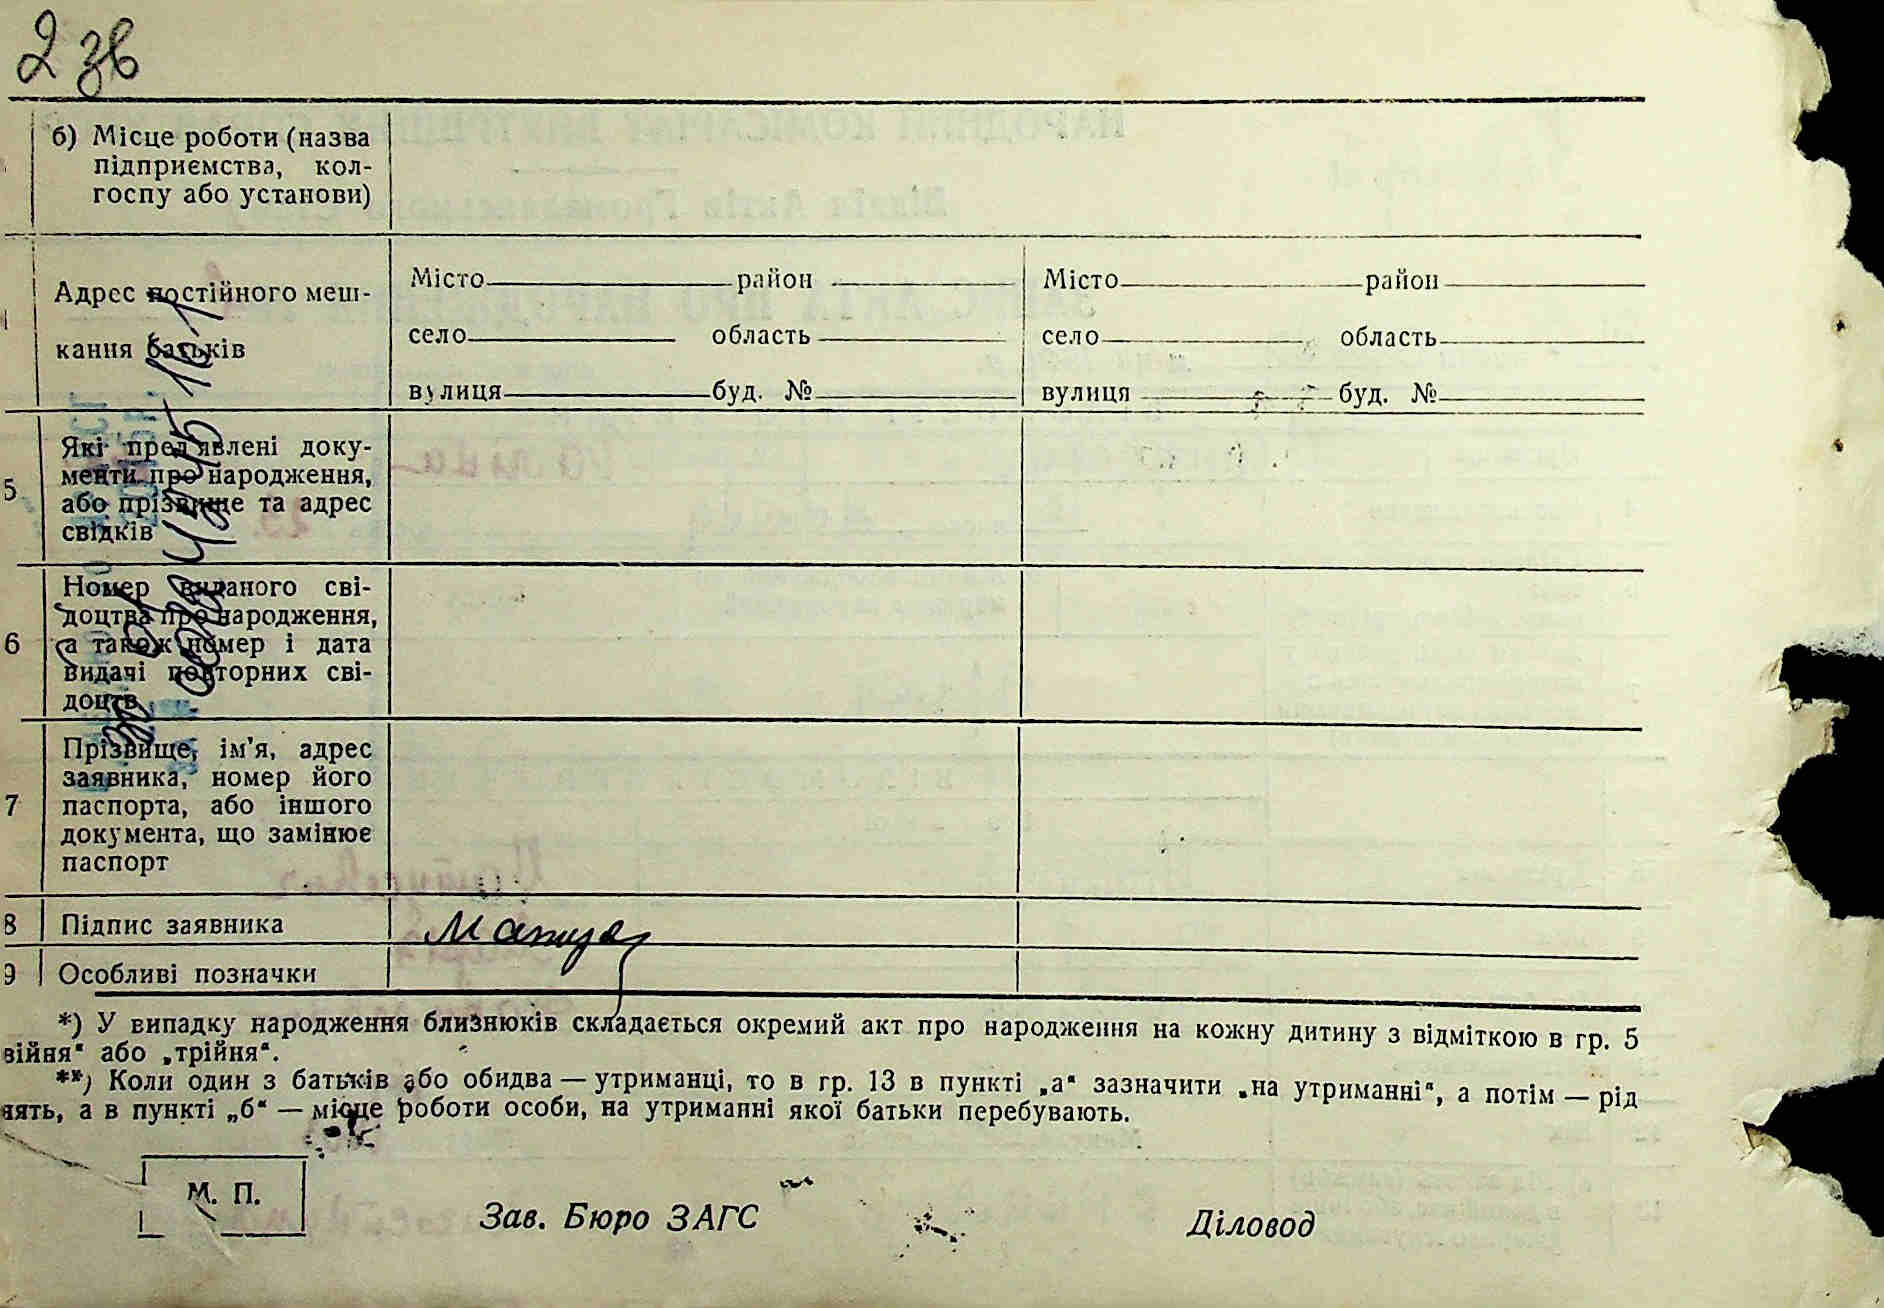 2 зв
б) Місце роботи (назва
підприємства, кол-
госпу або установи)
Адрес постійного меш-
кання батьків
Місто район
село область
вулиця буд. №
Місто район
село область
вулиця буд. №
5 Які пред'явлені доку-
менти про народження,
або прізвище та адрес
свідків
6 Номер виданого сві-
доцтва про народження,
а також номер і дата
видачі повторних сві-
доцтв
7 Прізвище, ім'я, адрес
заявника, номер його
паспорта, або іншого
документа, що замінює
паспорт
8 Підпис заявника
9 Особливі позначки
*) У випадку народження близнюків складається окремий акт про народження на кожну дитину з відміткою в гр. 5
війня" або „трійня".
**) Коли один з батьків або обидва — утриманці, то в гр. 13 в пункті „а" зазначити „на утриманні", а потім — рід
нять, а в пункті „б" — місце роботи особи, на утриманні якої батьки перебувають.
М. П.
Зав. Бюро ЗАГС
Діловод